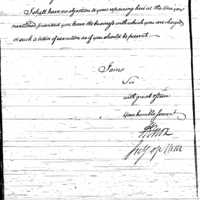 I shall have no objection to your repairing here at the time you
mentioned provided you leave the business with which you are charged
in such a train of execution as if you should be present.
I am
Sir
with great esteem
Your humble servant
H Knox
Secy of War